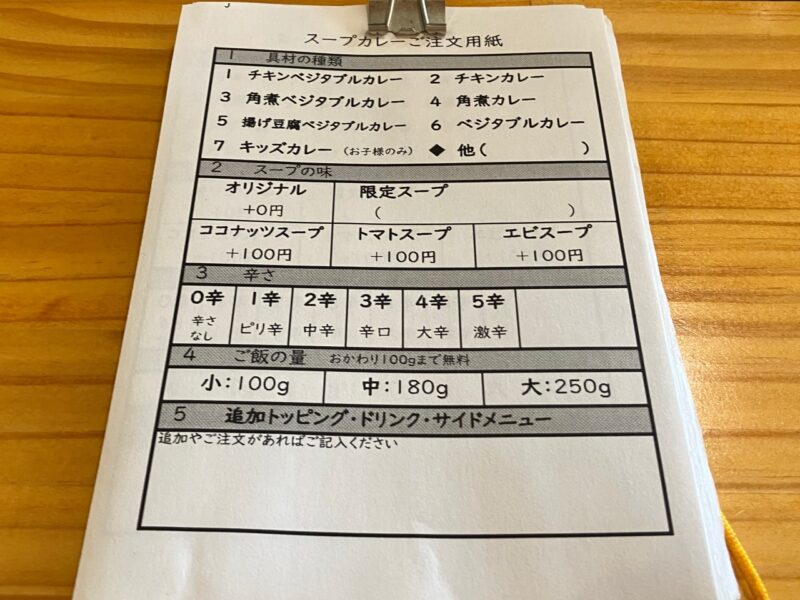 J
スープカレーご注文用紙
1 具材の種類
1 チキンベジタブルカレー 2 チキンカレー
3 角煮ベジタブルカレー 4 角煮カレー
5 揚げ豆腐ベジタブルカレー 6 ベジタブルカレー
7 キッズカレー (お子様のみ) ◆ 他( )
2 スープの味
オリジナル 限定スープ
+0円 ( )
ココナッツスープ トマトスープ エビスープ
+100円 +100円 +100円
3 辛さ
0辛 1辛 2辛 3辛 4辛 5辛
辛さなし ピリ辛 中辛 辛口 大辛 激辛
4 ご飯の量 おかわり100gまで無料
小:100g 中:180g 大:250g
5 追加トッピング・ドリンク・サイドメニュー
追加やご注文があればご記入ください